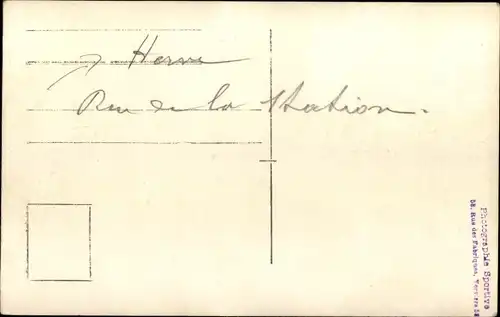 J Herve
Rue de la Station.
Photographie Sportive
58, Rue des Fabriques, Verviers